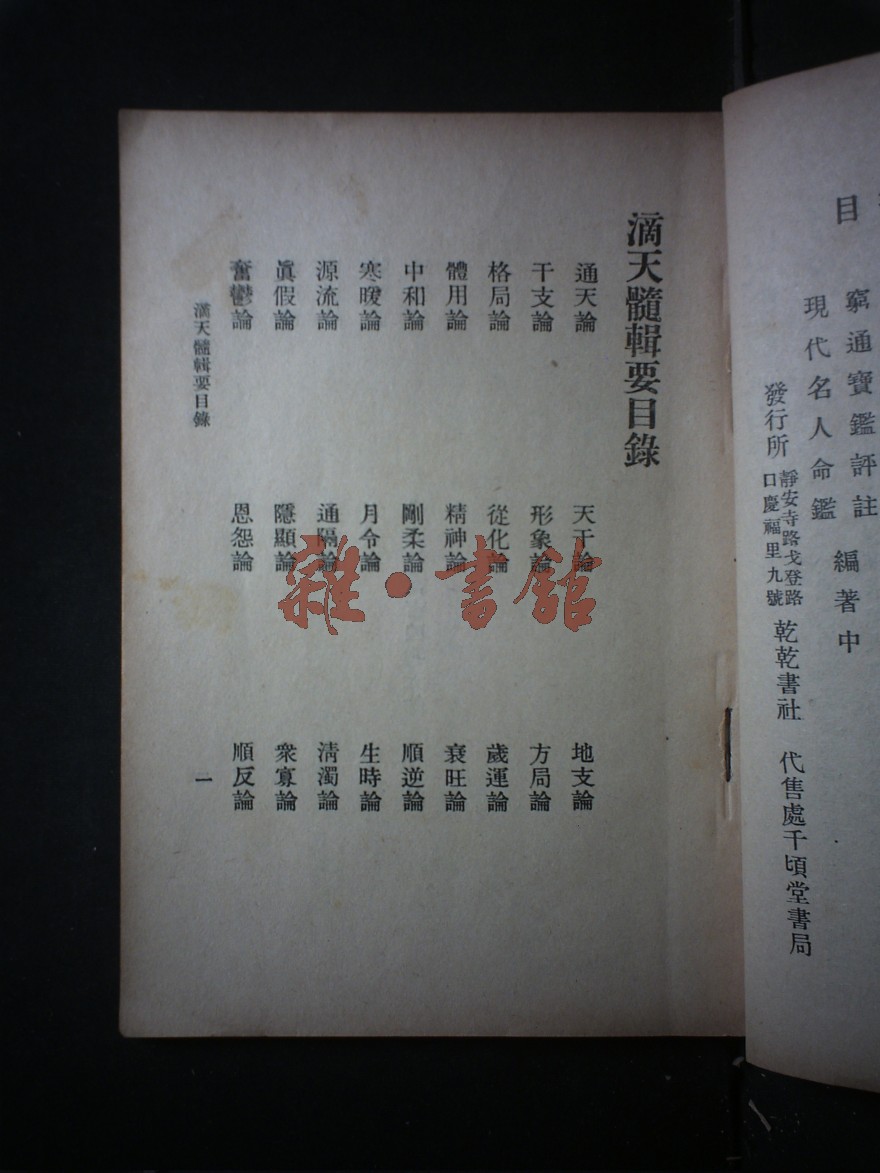 目
窮通寶鑑評註
現代名人命鑑
編著中
發行所 靜安寺路戈登路口慶福里九號 乾乾書社 代售處千頃堂書局
滴天髓輯要目錄
通天論 天干論 地支論
干支論 形象論 方局論
格局論 從化論 歲運論
體用論 精神論 衰旺論
中和論 剛柔論 順逆論
寒暖論 月令論 生時論
源流論 通隔論 清濁論
眞假論 隱顯論 衆寡論
奮鬱論 恩怨論 順反論
滴天髓輯要目錄 一
雜·書館